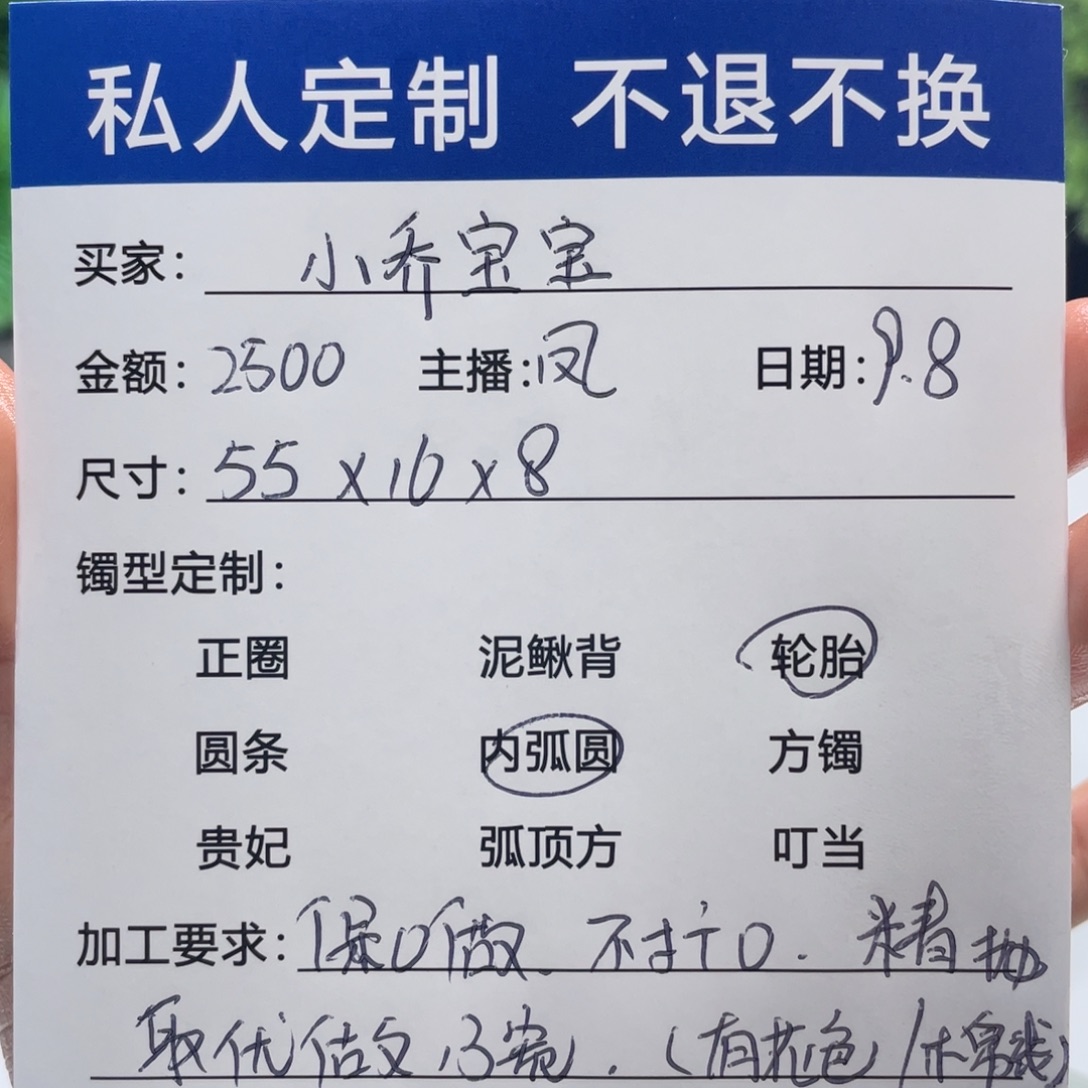 私人定制 不退不换
买家： 小乔宝宝
金额：2500 主播：凤 日期：9.8
尺寸：55×10×8
镯型定制：
正圈 泥鳅背 轮胎
圆条 内弧圆 方镯
贵妃 弧顶方 叮当
加工要求：保口做、不才口. 精抛
取优做 宽.（有花色/木帛